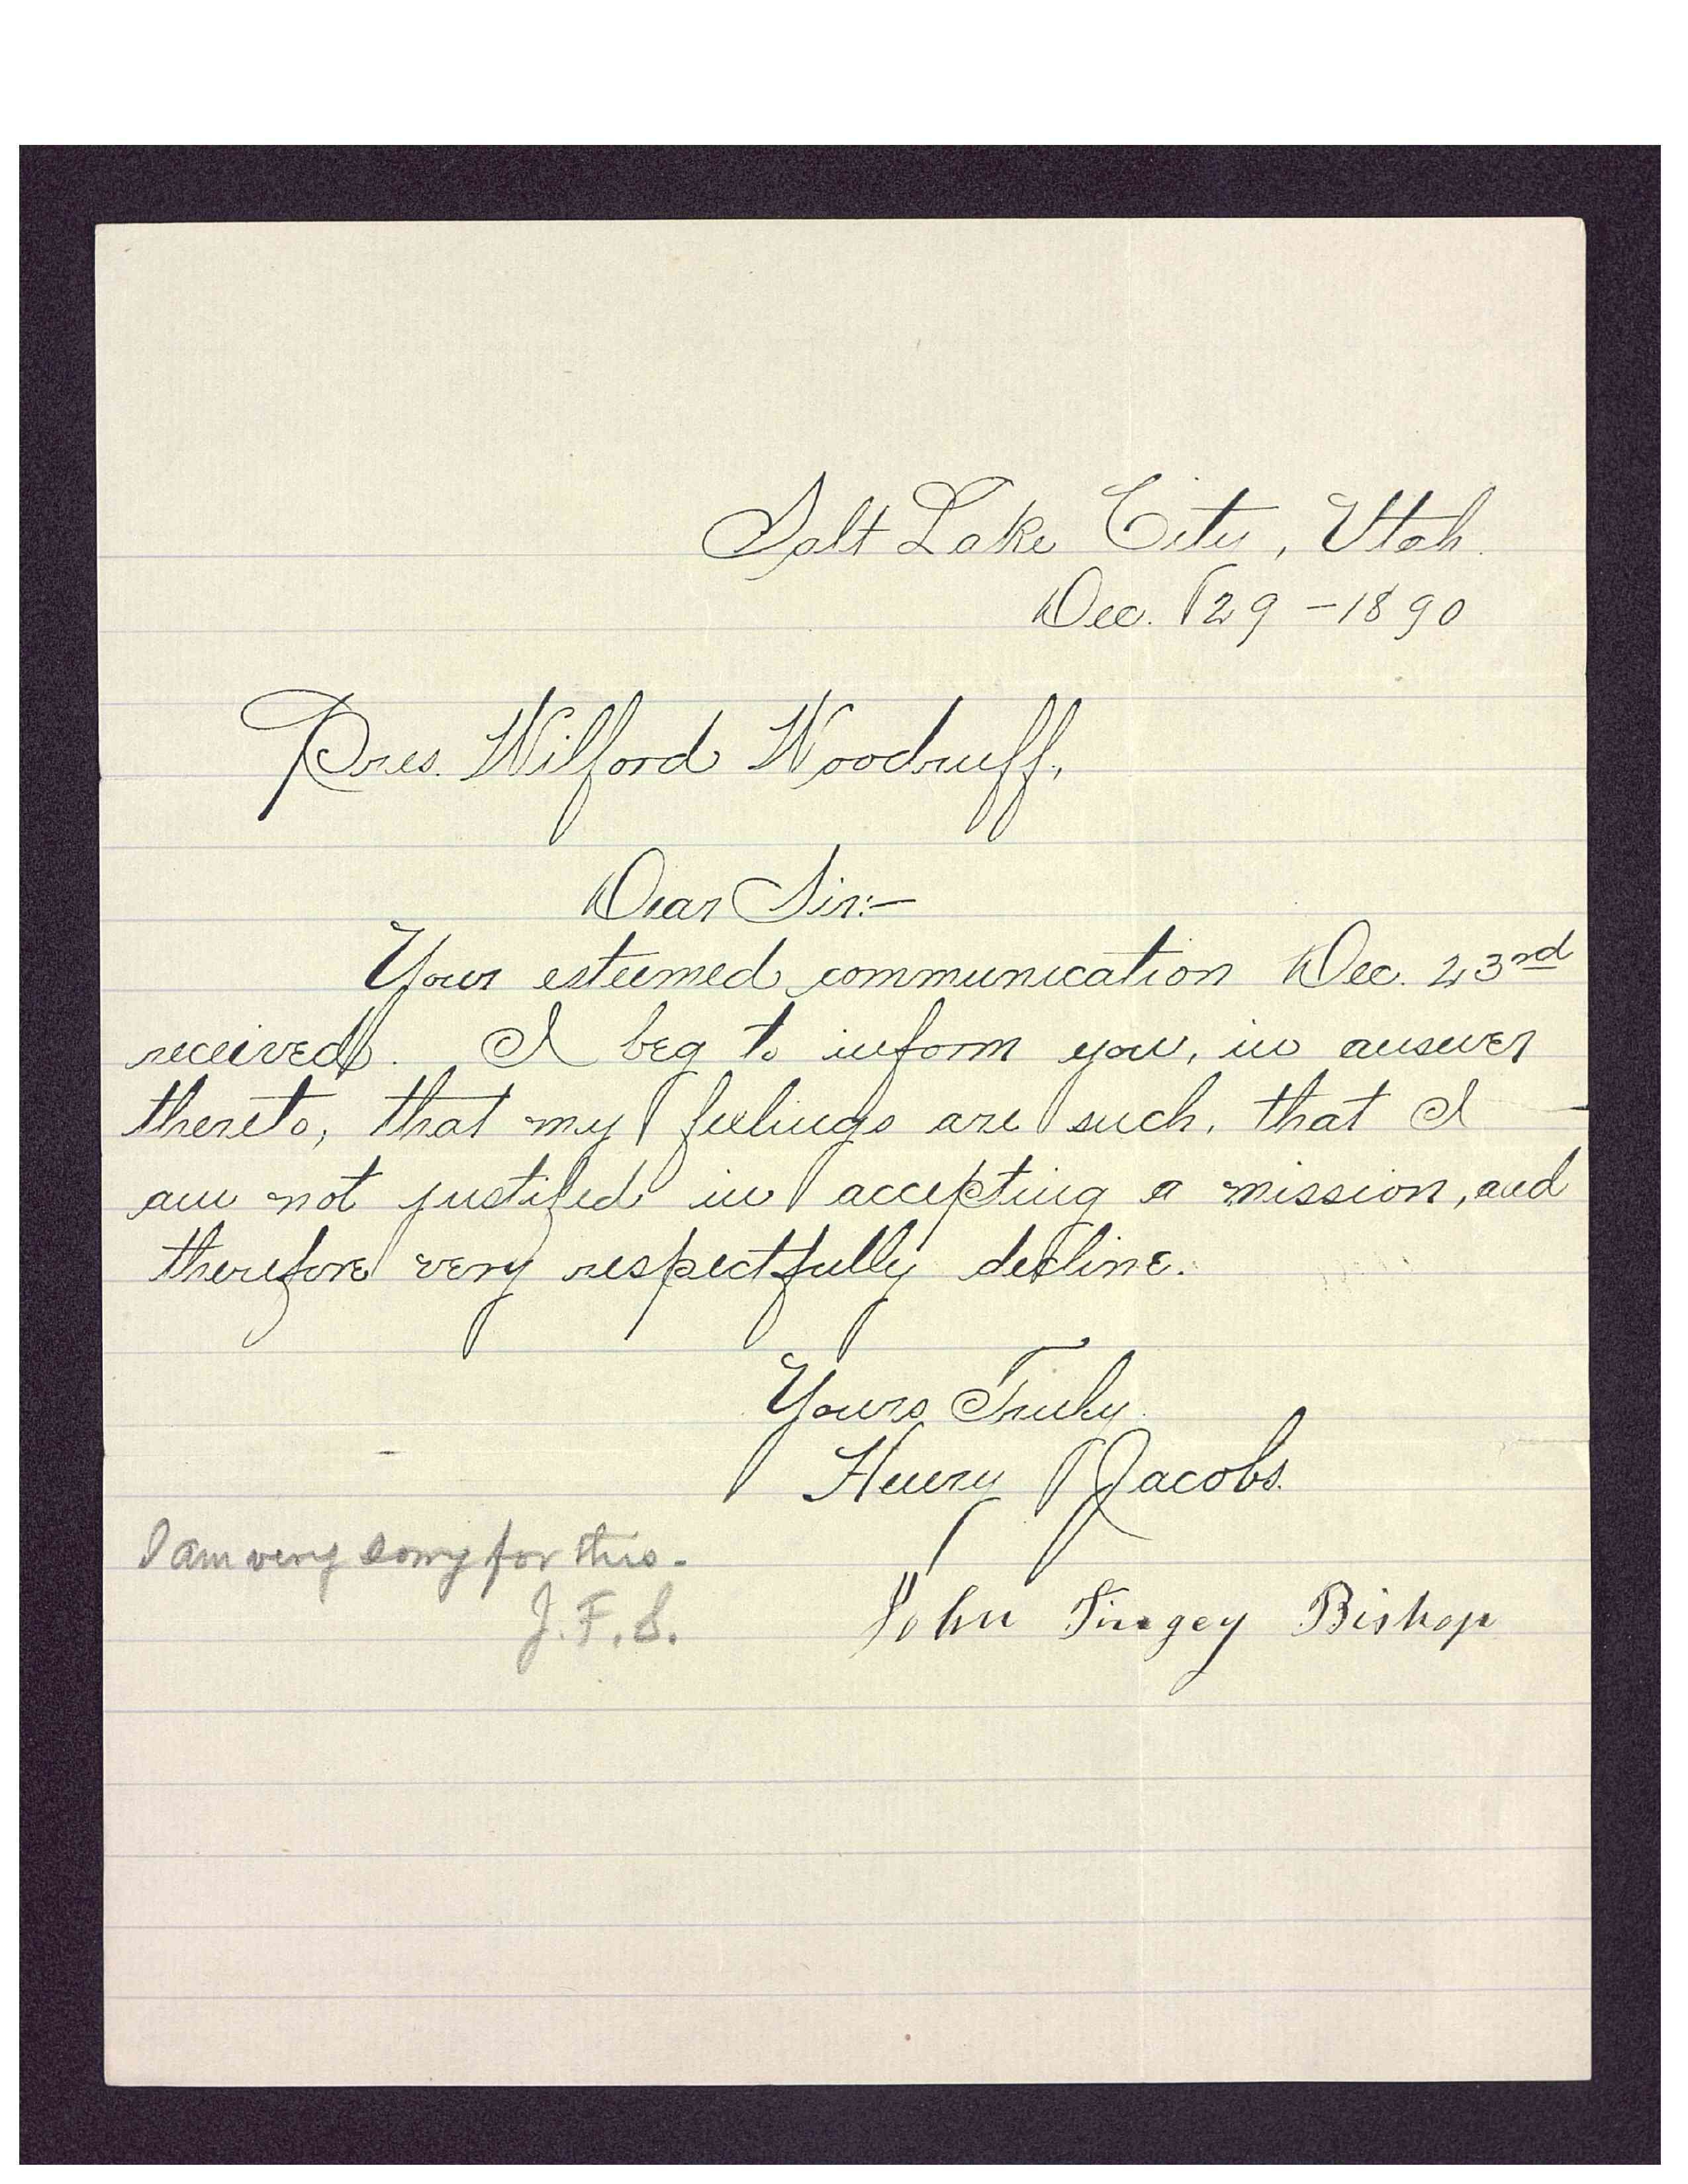 Salt Lake City, Utah.
Dec. 29 - 1890
Pres. Wilford Woodruff,
Dear Sir:-
Your esteemed communication Dec. 23rd
received. I beg to inform you, in answer
thereto, that my feelings are such, that I
am not justified in accepting a mission, and
therefore very respectfully decline.
Yours Truly.
Henry Jacobs.
I am very sorry for this.
J. F. S.
John Tingey Bishop